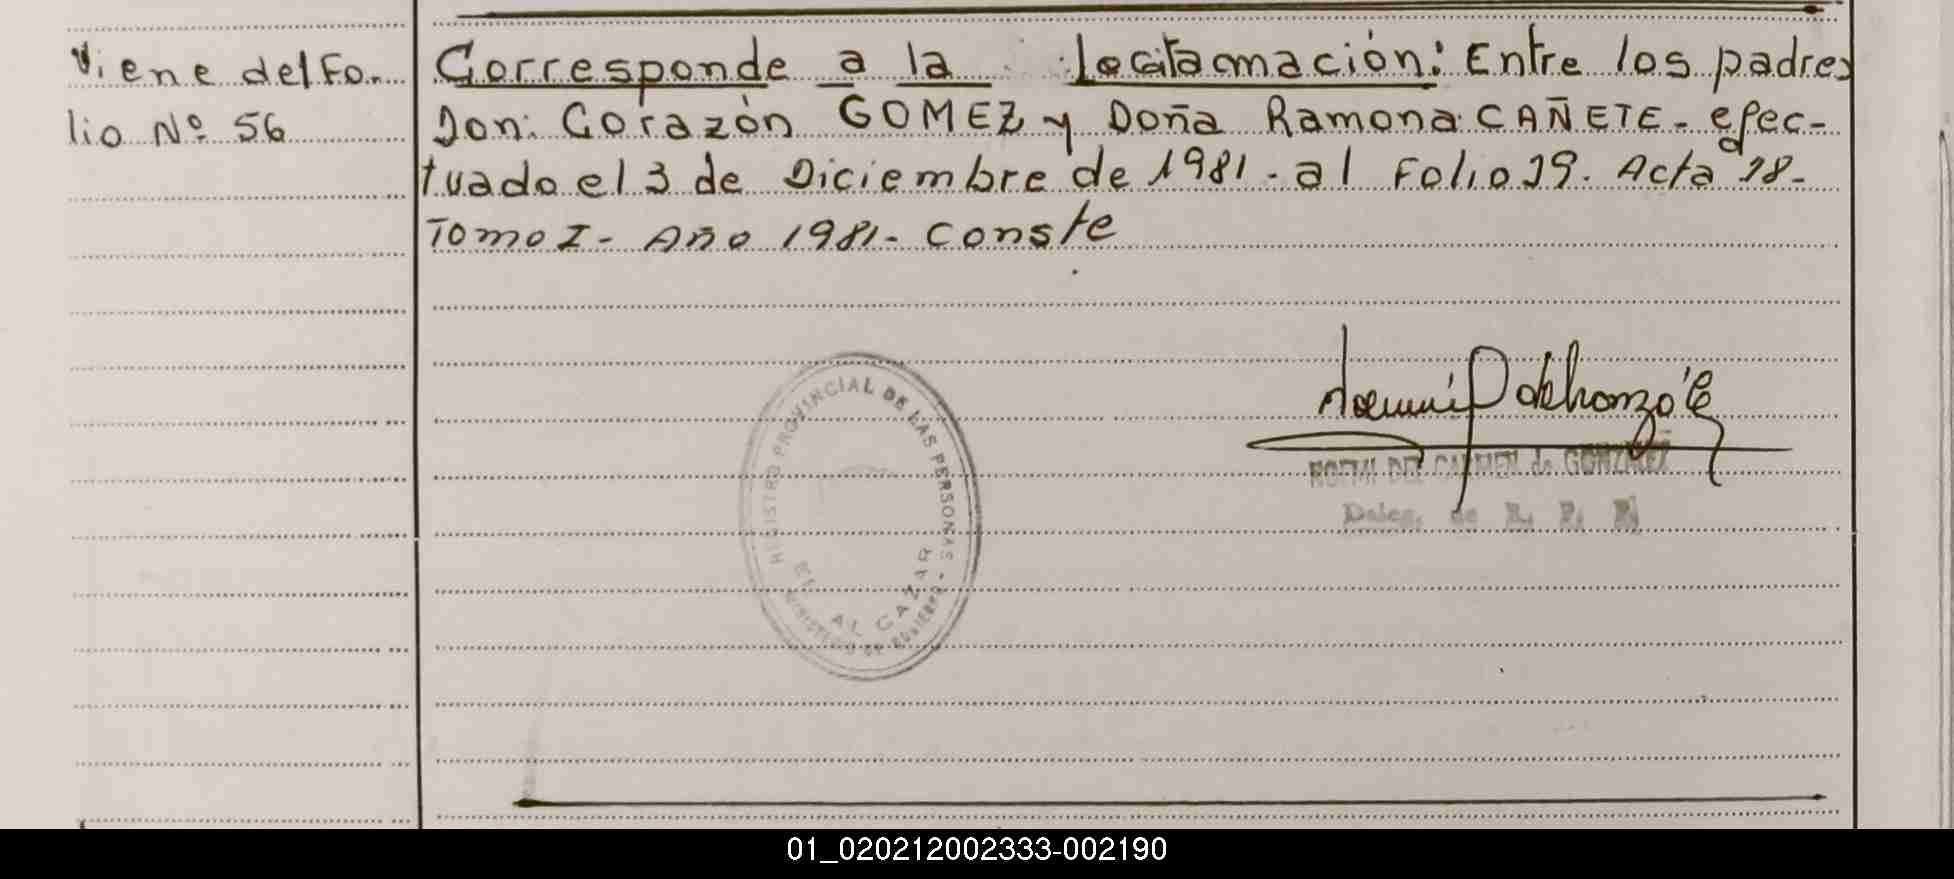 Viene del Fo.
lio Nº 56
Corresponde a la Legitamación: Entre los padres
Don: Corazón GOMEZ y Doña Ramona CAÑETE- efec-
tuado el 3 de Diciembre de 1981. al Folio 19. Acta 18-
Tomo I- Año 1981- Conste
REGISTRO PROVINCIAL DE LAS PERSONAS
EL ALCAZAR
MINISTERIO DE GOBIERNO
NOEMI DEL CARMEN de GONZALEZ
Deleg. de R. P. P.
01_020212002333-002190